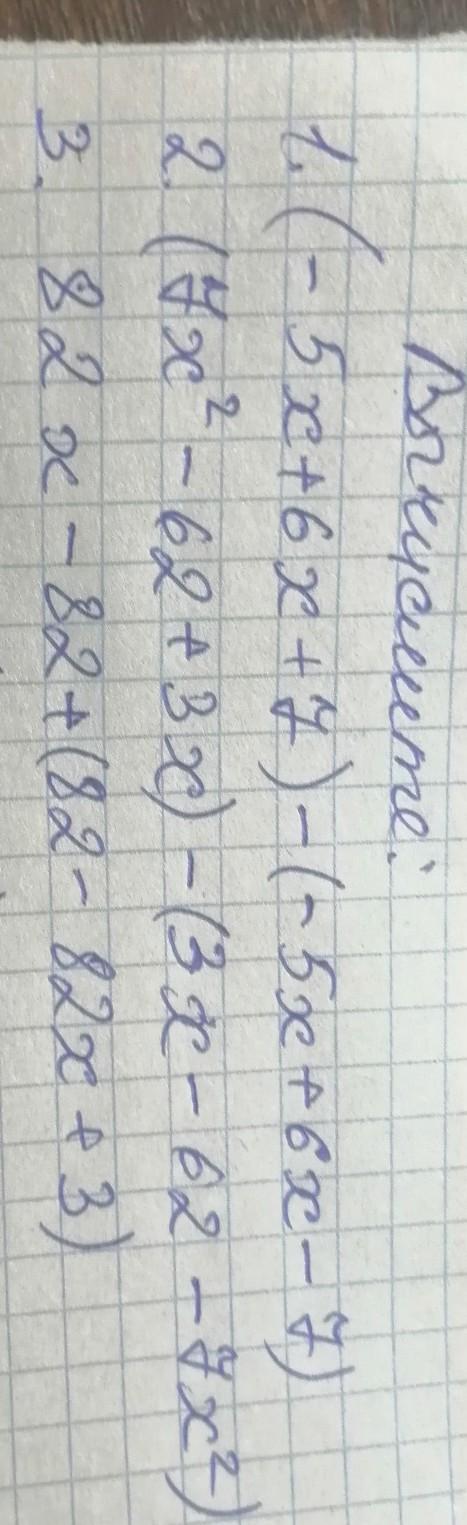 Вычислите:
1. (-5x+6x+7)-(-5x+6x-7)
2. (7x²-62+3x)-(3x-62-7x²)
3. 82x-82+(82-82x+3)